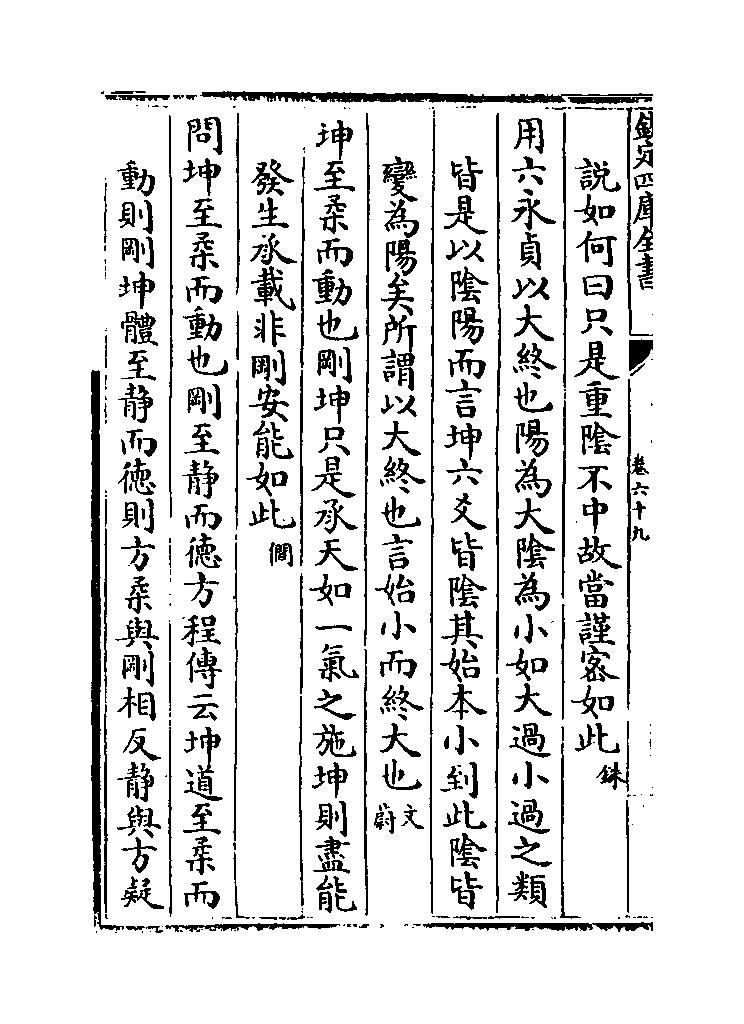 欽定四庫全書
卷六十九
說如何曰只是重陰不中故當謹宻如此銖
用六永貞以大終也陽為大陰為小如大過小過之類
皆是以陰陽而言坤六爻皆陰其始本小到此陰皆
變為陽矣所謂以大終也言始小而終大也文蔚
坤至柔而動也剛坤只是承天如一氣之施坤則盡能
發生承載非剛安能如此僩
問坤至柔而動也剛至静而徳方程傳云坤道至柔而
動則剛坤體至静而徳則方柔與剛相反静與方疑